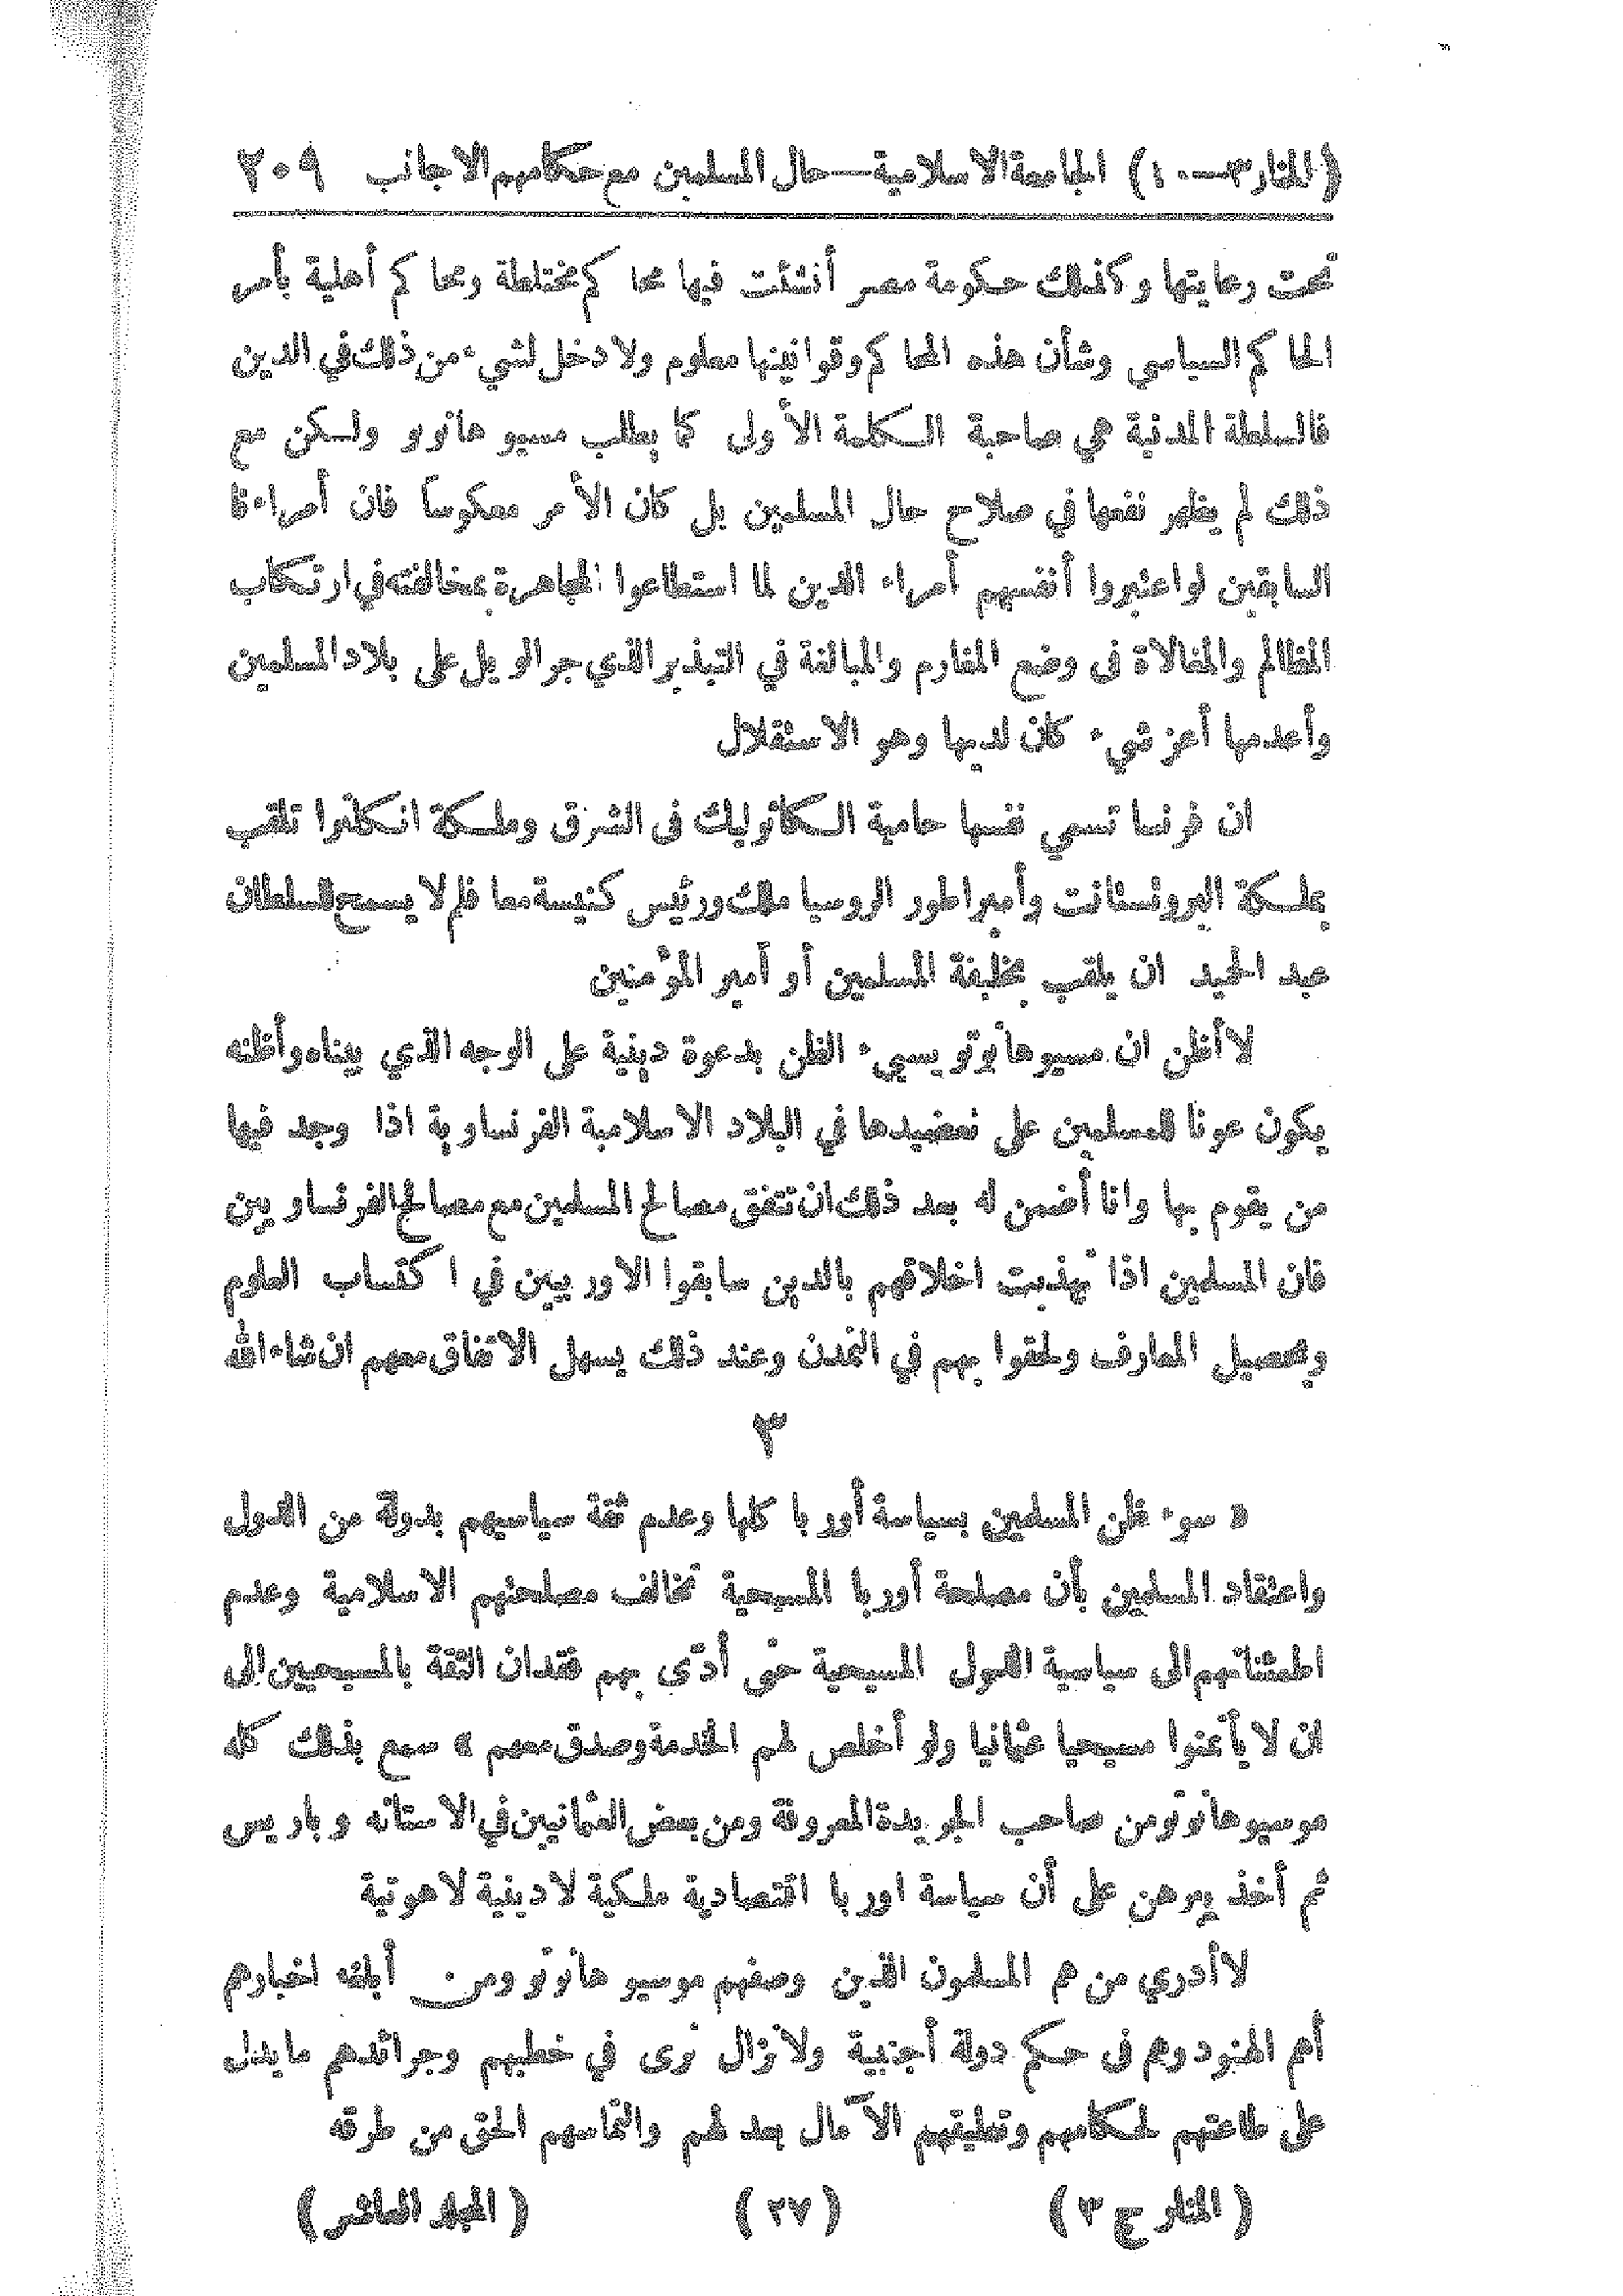 (المنار ٣ — ١٠) الجامعة الاسلامية — حال المسلمين مع حكامهم الاجانب ٢٠٩
تحت رعايتها وكذلك حكومة مصر أنشئت فيها محاكم مختلطة ومحاكم أهلية بأمر
الحاكم السياسي وشأن هذه المحاكم وقوانينها معلوم ولا دخل لشيء من ذلك في الدين
فالسلطة المدنية هي صاحبة الكلمة الأولى كما يطلب مسيو هانوتو ولكن مع
ذلك لم يظهر نفعها في صلاح حال المسلمين بل كان الأمر معكوساً فان أمراءنا
السابقين لو اعتبروا أنفسهم أمراء الدين لما استطاعوا المجاهرة بمخالفته في ارتكاب
المظالم والمغالاة في وضع المغارم والمبالغة في التبذير الذي جر الويل على بلاد المسلمين
وأعدمها أعز شيء كان لديها وهو الاستقلال
ان فرنسا تسمي نفسها حامية الكاثوليك في الشرق وملكة انكلترا تلقب
بملكة البروتستانت وأمبراطور الروسيا ملك ورئيس كنيسة معا فلم لا يسمح للسلطان
عبد الحميد ان يلقب بخليفة المسلمين أو أمير المؤمنين
لا أظن ان مسيو هانوتو يسيء الظن بدعوة دينية على الوجه الذي بيناه وأظنه
يكون عونا للمسلمين على تعضيدها في البلاد الاسلامية الفرنساوية اذا وجد فيها
من يقوم بها وانا أضمن له بعد ذلك ان تتفق مصالح المسلمين مع مصالح الفرنساويين
فان المسلمين اذا تهذبت اخلاقهم بالدين سابقوا الاوربيين في اكتساب العلوم
وتحصيل المعارف ولحقوا بهم في التمدن وعند ذلك يسهل الاتفاق معهم ان شاء الله
٣
« سوء ظن المسلمين بسياسة أوربا كلها وعدم ثقة سياسيهم بدولة من الدول
واعتقاد المسلمين بأن مصلحة أوربا المسيحية تخالف مصلحتهم الاسلامية وعدم
اطمئنانهم الى سياسية الدول المسيحية حتى أدّى بهم فقدان الثقة بالمسيحيين الى
ان لا يأتمنوا مسيحيا عثمانيا ولو أخلص لهم الخدمة وصدق معهم » سمع بذلك كله
موسيو هانوتو من صاحب الجريدة المعروفة ومن بعض العثمانيين في الاستانه وباريس
ثم أخذ يبرهن على أن سياسة اوربا اقتصادية ملكية لا دينية لاهوتية
لا أدري من هم المسلمون الذين وصفهم موسيو هانوتو ومن أبلغه اخبارهم
أهم الهنود وهم في حكم دولة أجنبية ولا نزال نرى في خطبهم وجرائدهم ما يدل
على طاعتهم لحكامهم وتعليقهم الآمال بعدلهم والتماسهم الحق من طرقه
(المنار ج ٣) (٢٧) (المجلد العاشر)